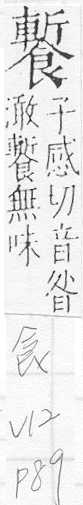 䭕
子感切音昝
澉䭕無味
食
V12
P89